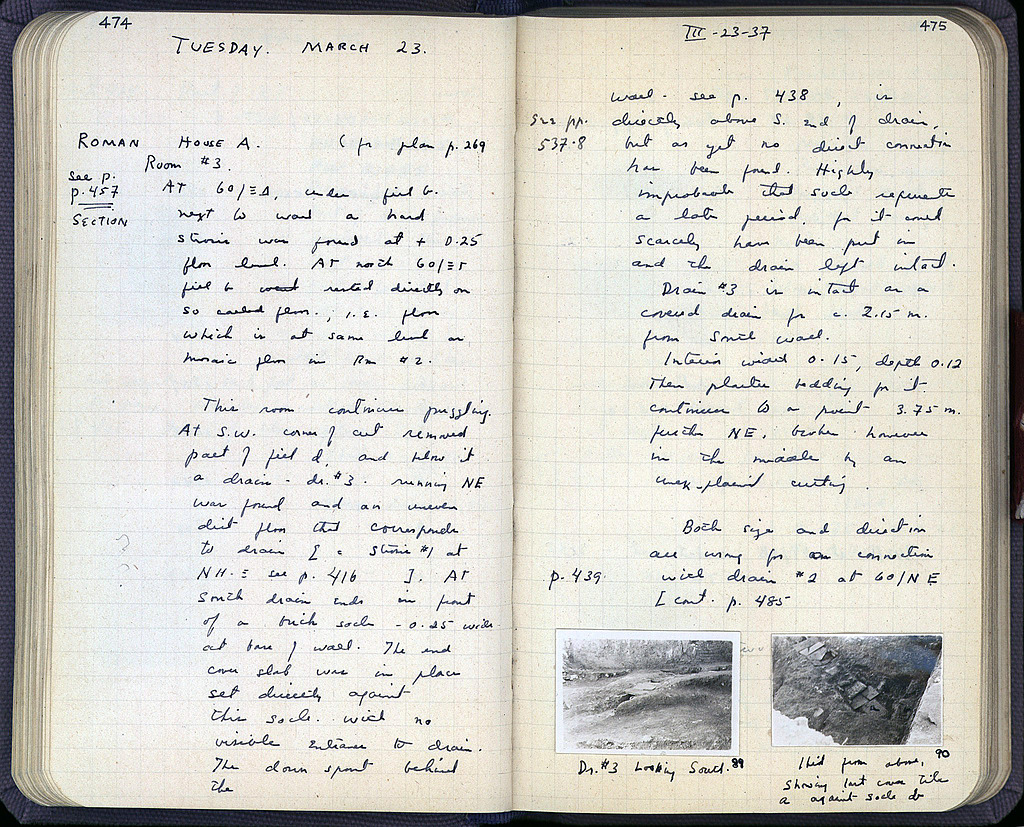 474
TUESDAY. MARCH 23.
ROMAN HOUSE A. (for plan p. 269
Room #3.
see p.
p. 457
SECTION
At 60/ΞΔ, under fill b.
next to wall a hard
strosis was found at + 0.25
floor level. At north 60/
fill b rested directly on
so called floor, i.e. floor
which is at same level as
mosaic floor in Rm #2.
This room continues puzzling.
At S.W. corner of cut removed
part of fill d, and below it
a drain - dr. #3. running NE
was found and an uneven
dirt floor that corresponds
to drain [ = strosis #1 at
NH.Ξ see p. 416 ]. At
South drain ends in front
of a brick socle - 0.25 wide
at base of wall. The end
cover slab was in place
set directly against
this socle. with no
visible entrance to drain.
The down spout behind
the
III-23-37
475
wall - see p. 438, is
see pp.
537-8
directly above S. end of drain,
but as yet no direct connection
has been found. Highly
improbable that socle represents
a late period, for it could
scarcely have been put in
and the drain left intact.
Drain #3 is intact as a
covered drain for c. 2.15 m.
from South wall.
Interior width 0.15, depth 0.12
Then plaster bedding for it
continues to a point 3.75 m.
further NE, broken however
in the middle by an
unexplained cutting.
Both size and direction
are wrong for connection
p. 439.
with drain #2 at 60/NE
[cont. p. 485
Dr. #3 Looking South. 89
90
Ibid from above,
showing last cover tile
a against socle